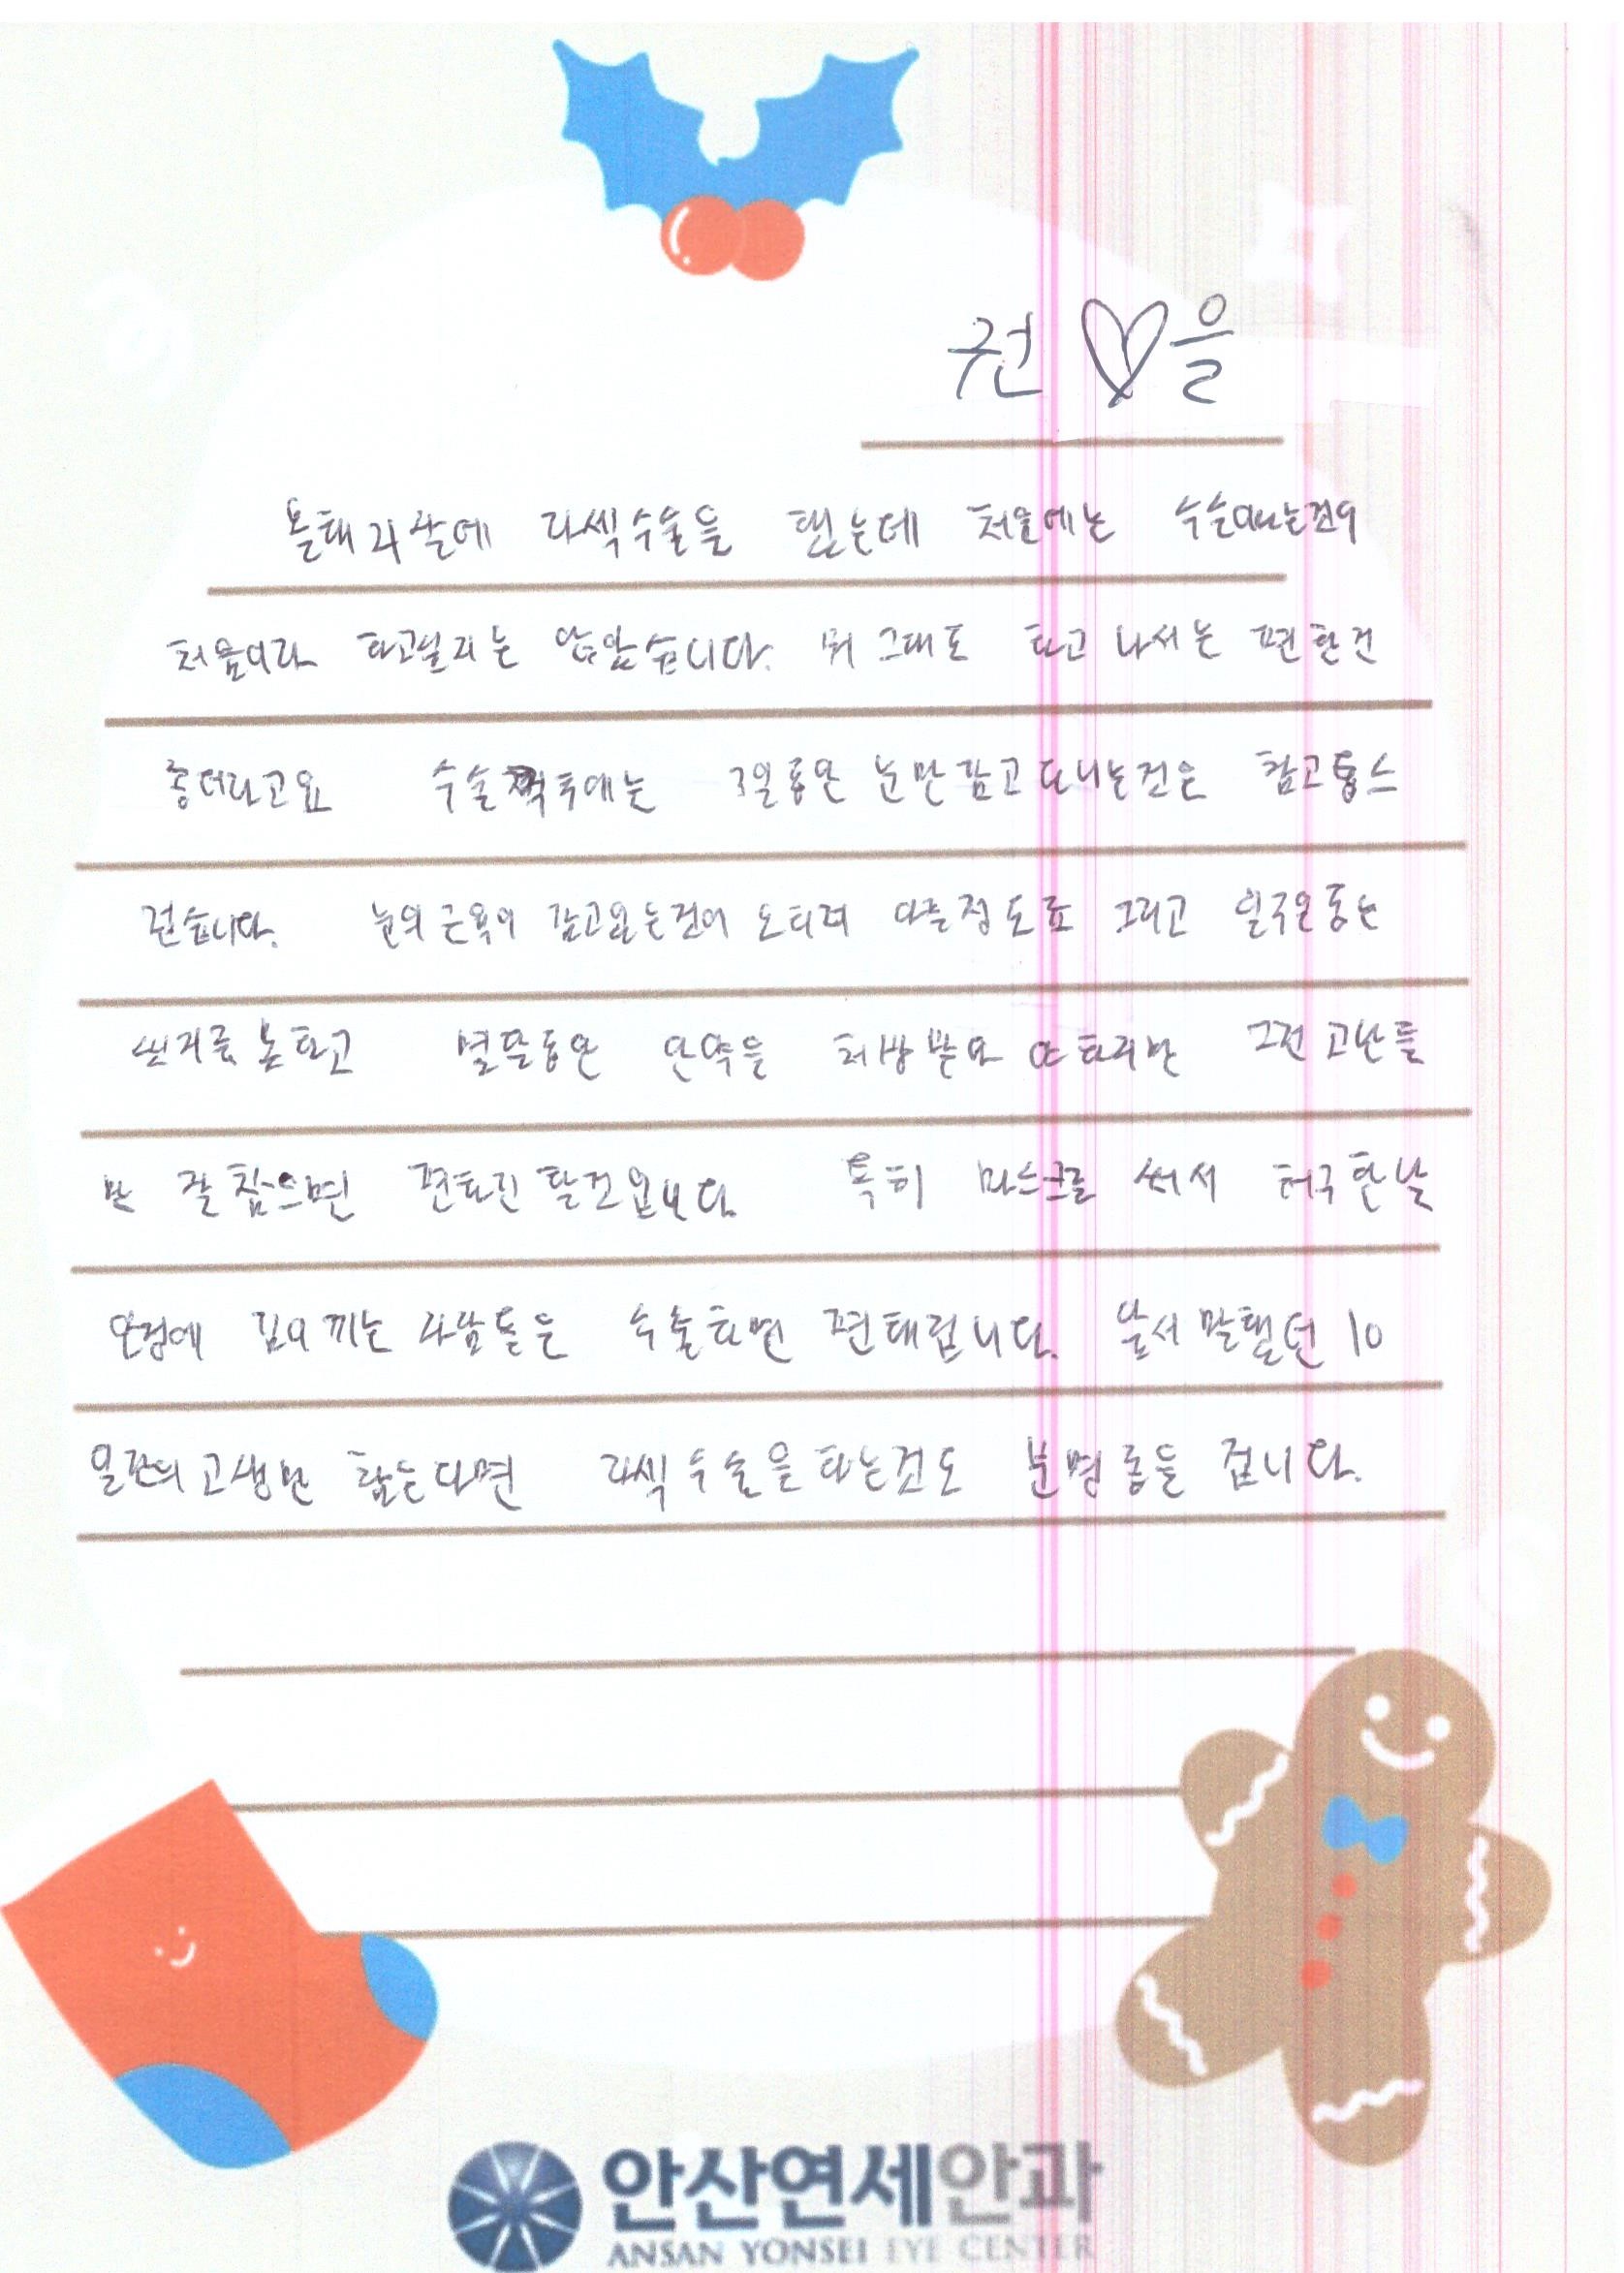 권♡을
올해 21살에 라섹수술을 했는데 처음에는 수술이라는건이
처음이라 하고싶지는 않았습니다. 뭐 그래도 하고 나서는 편한건
좋더라고요 수술 후에는 3일동안 눈만감고 다니는건은 참고통스
런습니다. 눈의 근육이 감고있는건이 오히려 아플정도로 그리고 일주일동안
씻지를 못하고 열흘동안 안약을 처방받아 야하지만 그런 고난들
만 잘 참으면 편하긴 할건입니다. 특히 마스크를 써서 허구한날
안경에 김이 끼는 사람들은 수술하면 편해집니다. 앞서 말했던 10
일간의 고생만 참는다면 라섹수술을 하는것도 분명 좋을 겁니다.
안산연세안과
ANSAN YONSEI EYE CENTER